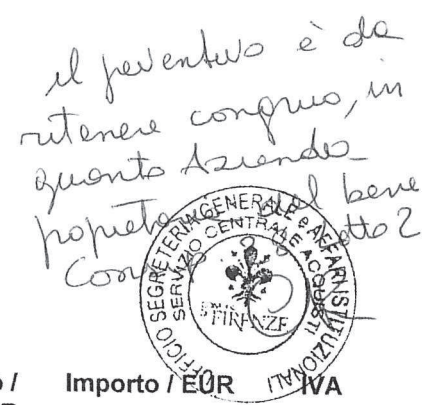 il preventivo è da
ritenere congruo, in
quanto Azienda
del bene
UFFICIO SEGRETERIA GENERALE e AFFARI ISTITUZIONALI
SERVIZIO CENTRALE ACQUISTI
FIRENZE
Importo / EUR IVA